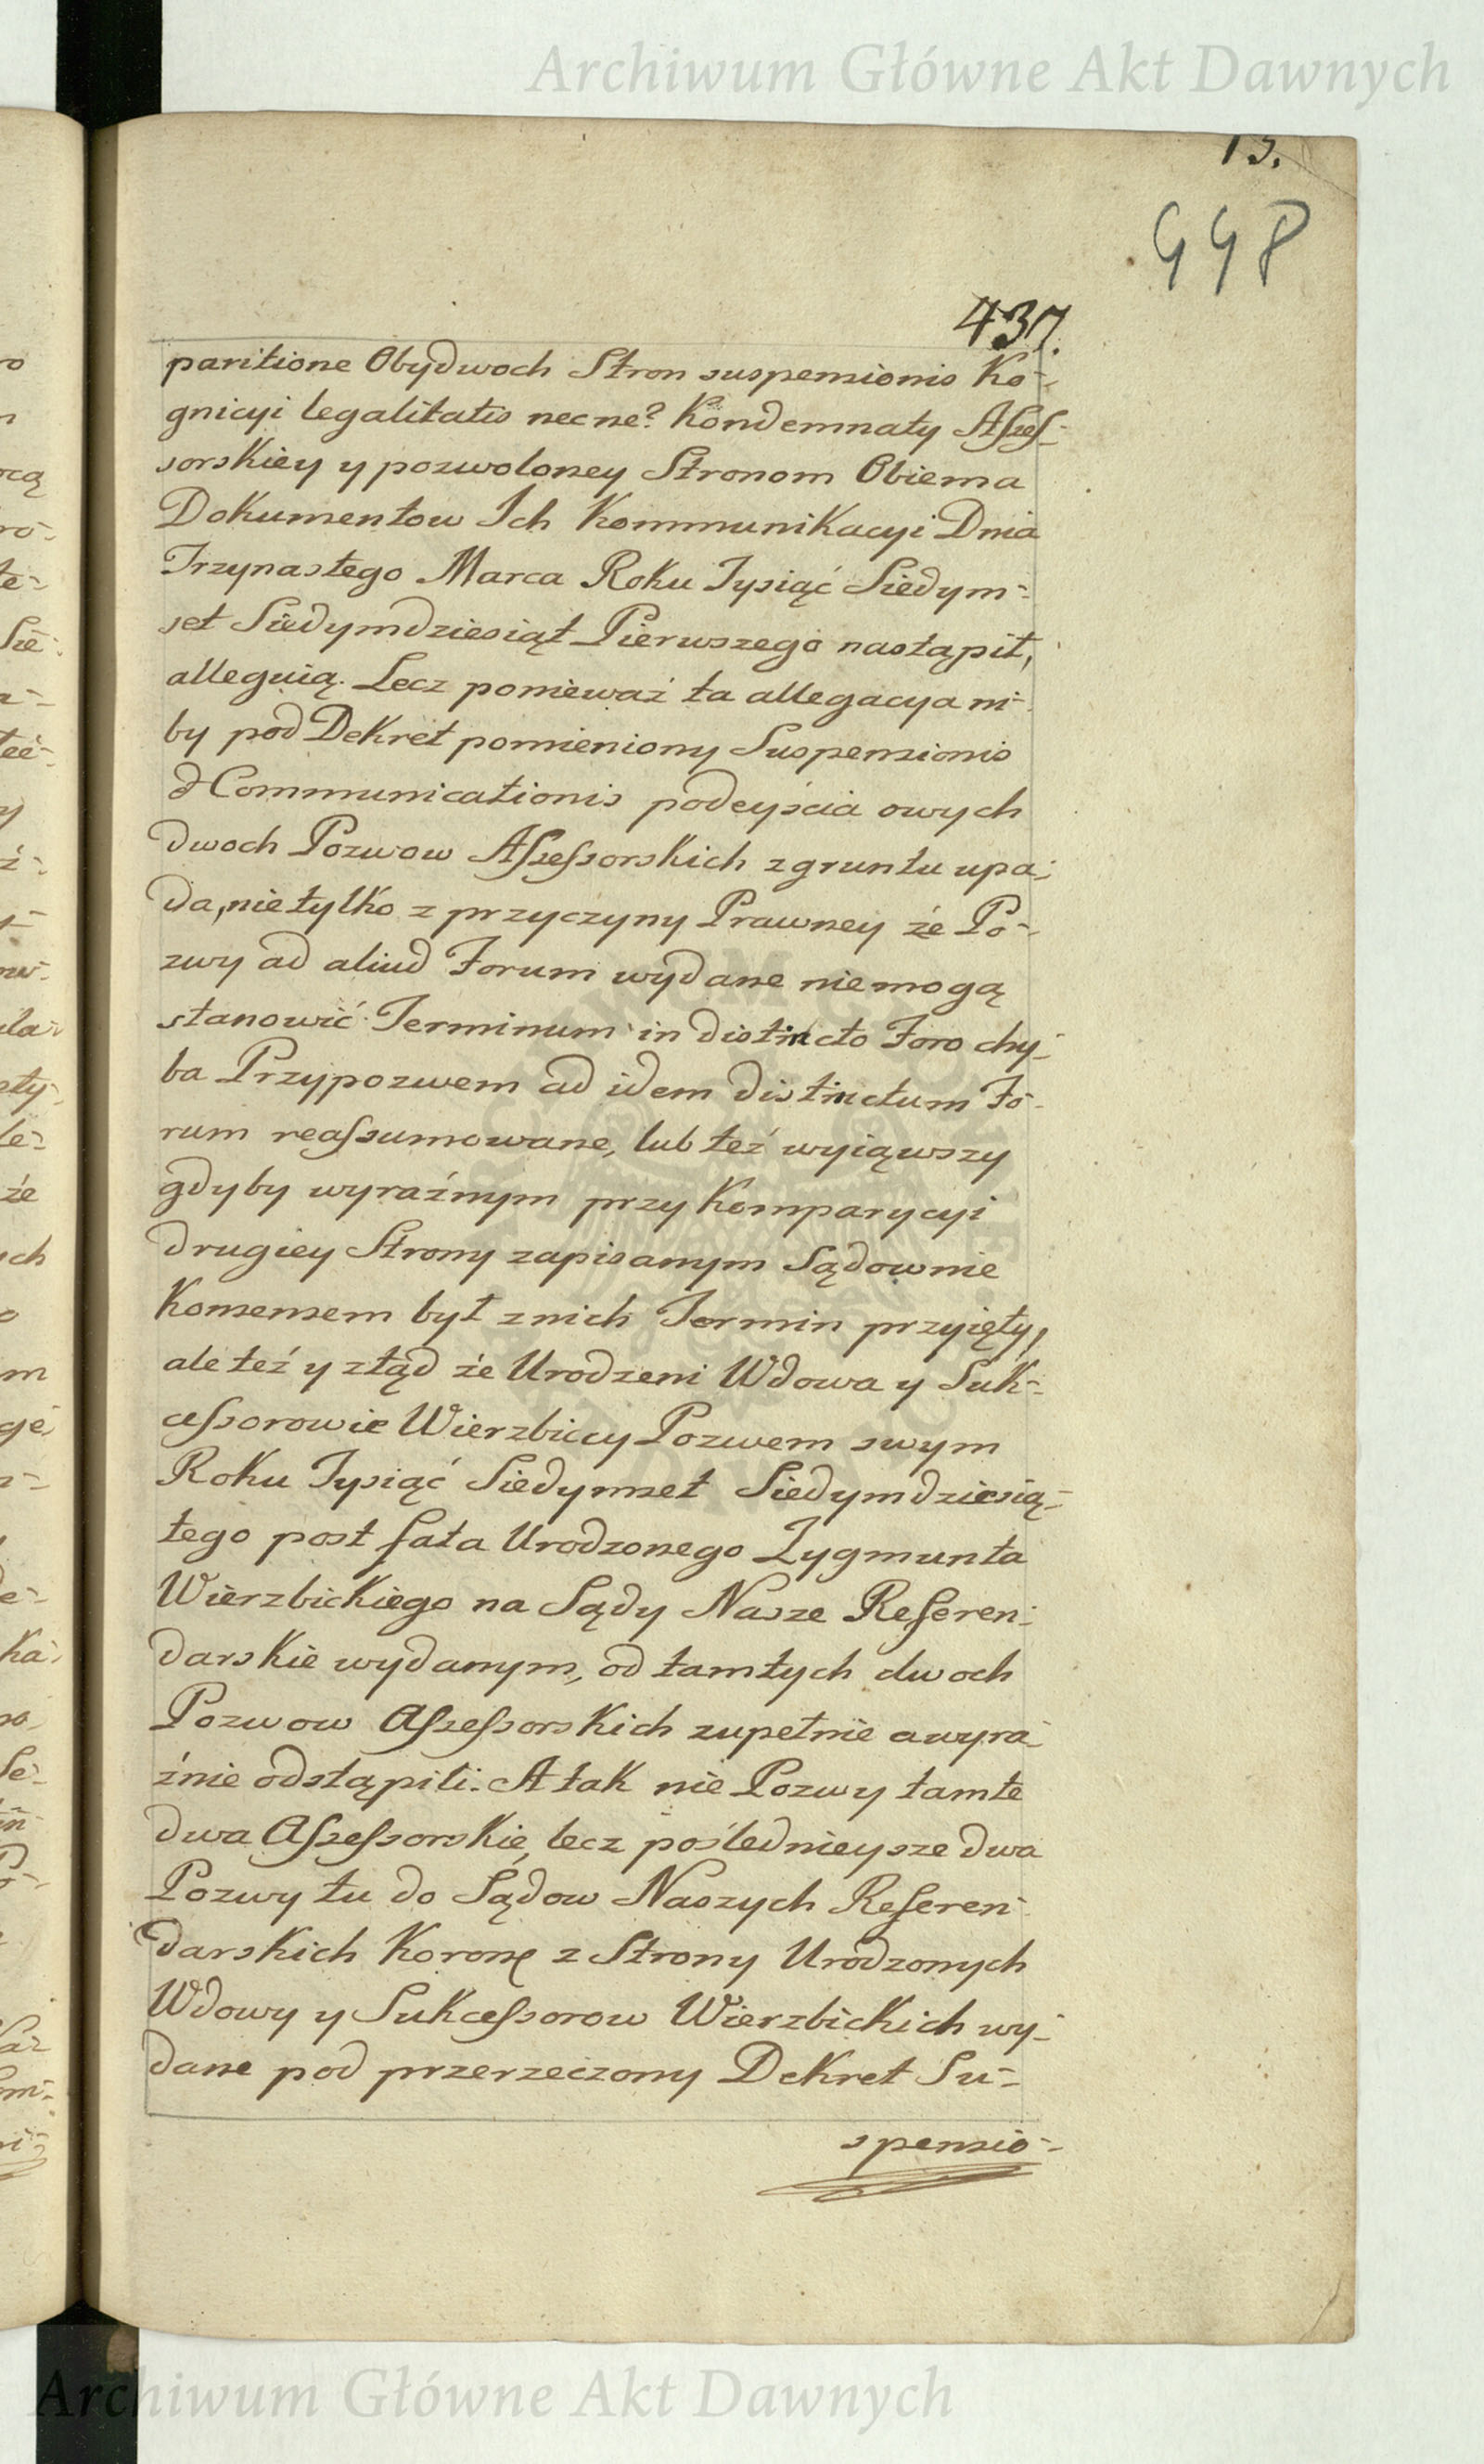 Archiwum Główne Akt Dawnych
13.
448
437.
paritione Obydwoch Stron suspensionis Ko-
gnicyi legalitatis necne? Kondemnaty Asses-
sorskiey y pozwoloney Stronom Obiema
Dokumentow Ich Kommunikacyi Dnia
Trzynastego Marca Roku Tysiąć Siedym-
set Siedymdziesiąt Pierwszego nastąpił,
alleguią. Lecz ponieważ ta allegacya ni-
by pod Dekret pomieniony Suspensionis
& Communicationis podeyścia owych
dwoch Pozwow Assessorskich z gruntu upa-
da, nie tylko z przyczyny Prawney że Po-
zwy ad aliud Forum wydane niemogą
stanowić Terminum in distincto Foro chy-
ba Przypozwem ad idem distinctum Fo-
rum reassumowane, lub też wyiąwszy
gdyby wyraźnym przy Komparycyi
drugiey Strony zapisanym Sądownie
Konsensem był z nich Termin przyięty,
ale też y ztąd że Urodzeni Wdowa y Suk-
cessorowie Wierzbiccy Pozwem swym
Roku Tysiąć Siedymset Siedymdziesią-
tego post fata Urodzonego Zygmunta
Wierzbickiego na Sądy Nasze Referen-
darskie wydanym, od tamtych dwoch
Pozwow Assessorskich zupełnie a wyra-
źnie odstąpili. A tak nie Pozwy tamte
dwa Assessorskie, lecz poślednieysze dwa
Pozwy tu do Sądow Naszych Referen-
darskich Koronę z Strony Urodzonych
Wdowy y Sukcessorow Wierzbickich wy-
dane pod przerzeczony Dekret Su-
spensio-
Archiwum Główne Akt Dawnych